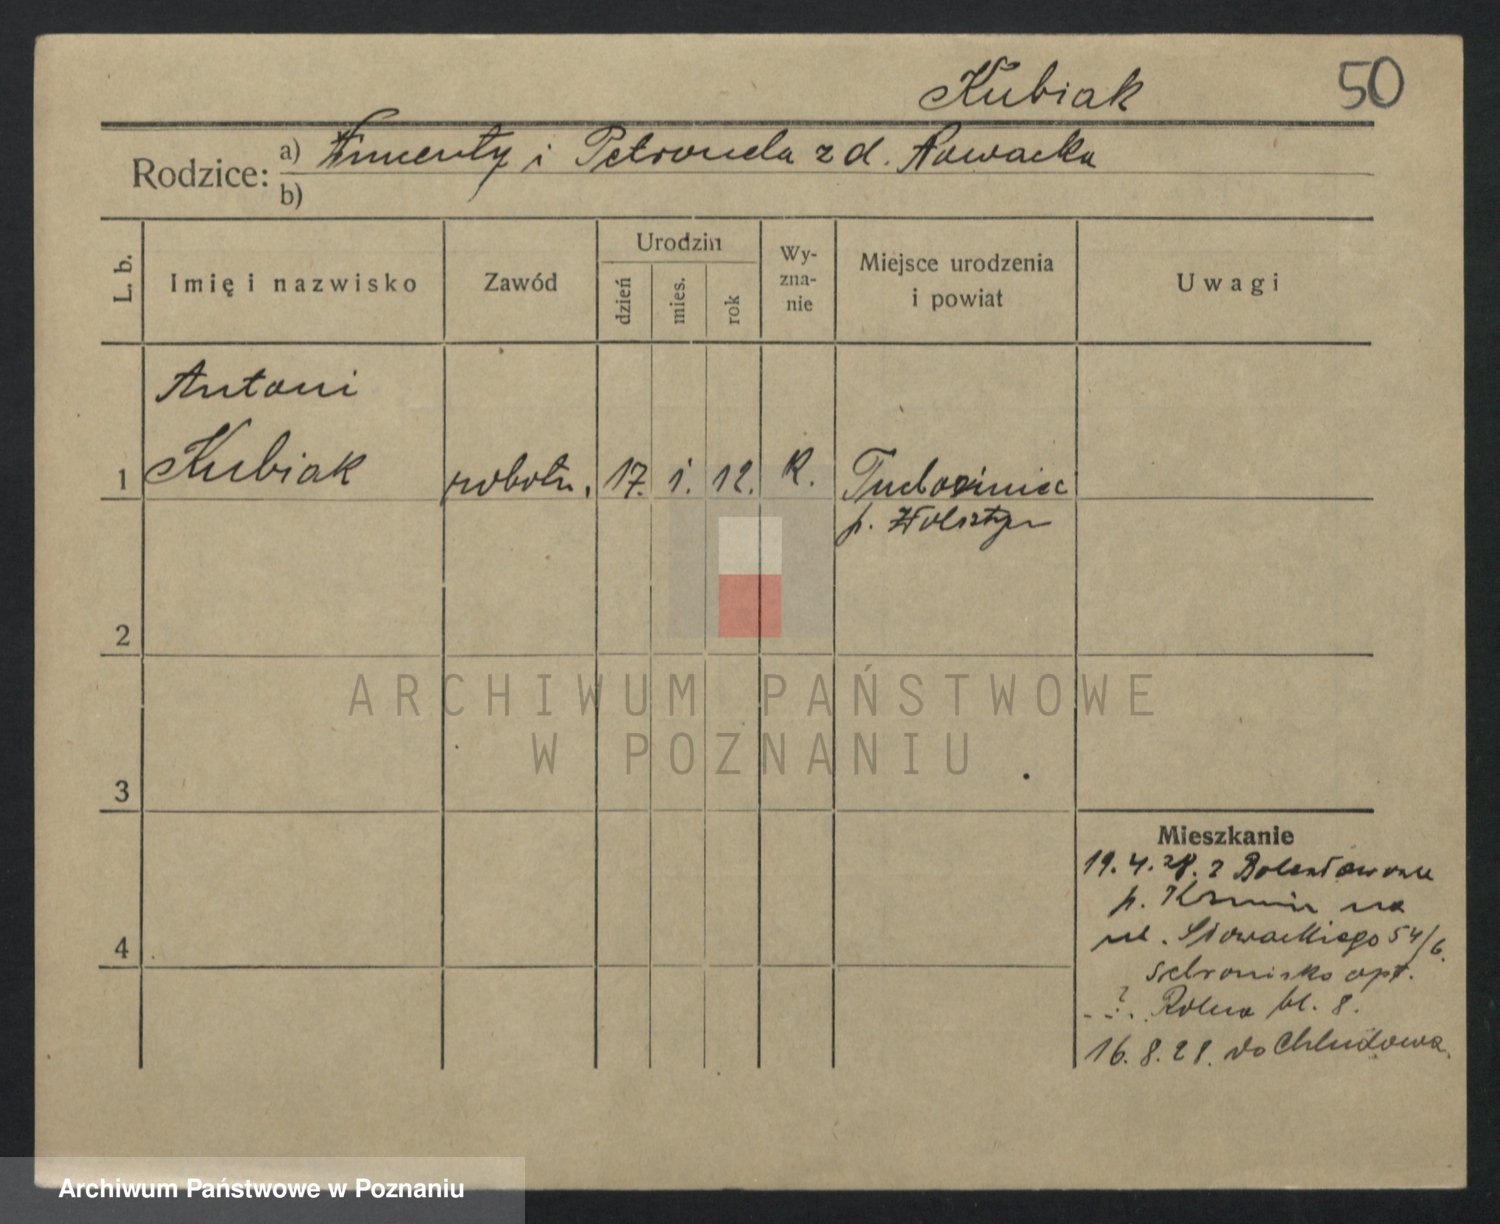 Kubiak
50
Rodzice: a) Wincenty i Petronela z d. Nowacka
b)
L. b.
Imię i nazwisko
Zawód
Urodzin
dzień
mies.
rok
Wy-
zna-
nie
Miejsce urodzenia
i powiat
Uwagi
Antoni
1 Kubiak robotn. 17. 1. 12. R.
p. Wolsztyn
2
3
4
ARCHIWUM PAŃSTWOWE
W POZNANIU
Mieszkanie
19.4.28. z
p. na
ul. Słowackiego 54/6.
schronisko opt.
- ? . Rolna bl. 8.
16.8.28. do Chludowa.
Archiwum Państwowe w Poznaniu